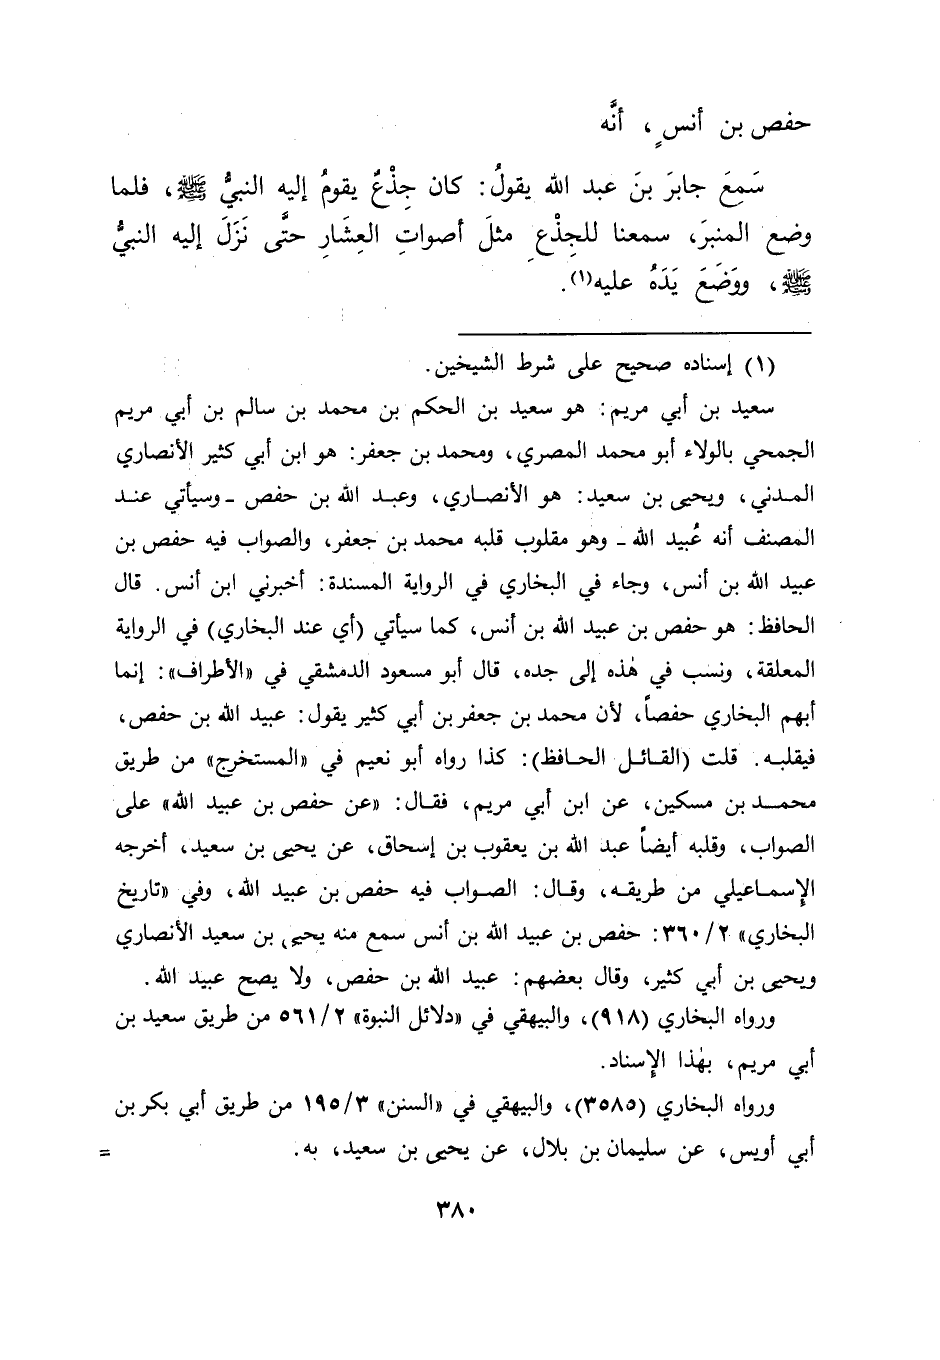 حفص بن أنسٍ ، أنَّه
سَمِعَ جابرَ بنَ عبد الله يقولُ : كان جِذْعٌ يقومُ إليه النبيُّ ﷺ ، فلما
وضع المنبرَ ، سمعنا للجِذْعِ مثلَ أصواتِ العِشَارِ حتَّى نَزَلَ إليه النبيُّ
ﷺ ، ووَضَعَ يَدَهُ عليه(١) .
(١) إسناده صحيح على شرط الشيخين .
سعيد بن أبي مريم : هو سعيد بن الحكم بن محمد بن سالم بن أبي مريم
الجمحي بالولاء أبو محمد المصري ، ومحمد بن جعفر : هو ابن أبي كثير الأنصاري
المدني ، ويحيى بن سعيد : هو الأنصاري ، وعبد الله بن حفص ـ وسيأتي عند
المصنف أنه عُبيد الله ـ وهو مقلوب قلبه محمد بن جعفر ، والصواب فيه حفص بن
عبيد الله بن أنس ، وجاء في البخاري في الرواية المسندة : أخبرني ابن أنس . قال
الحافظ : هو حفص بن عبيد الله بن أنس ، كما سيأتي (أي عند البخاري) في الرواية
المعلقة ، ونسب في هٰذه إلى جده ، قال أبو مسعود الدمشقي في «الأطراف» : إنما
أبهم البخاري حفصاً ، لأن محمد بن جعفر بن أبي كثير يقول : عبيد الله بن حفص ،
فيقلبه . قلت (القائل الحافظ) : كذا رواه أبو نعيم في «المستخرج» من طريق
محمد بن مسكين ، عن ابن أبي مريم ، فقال : «عن حفص بن عبيد الله» على
الصواب ، وقلبه أيضاً عبد الله بن يعقوب بن إسحاق ، عن يحيى بن سعيد ، أخرجه
الإسماعيلي من طريقه ، وقال : الصواب فيه حفص بن عبيد الله ، وفي «تاريخ
البخاري» ٣٦٠/٢ : حفص بن عبيد الله بن أنس سمع منه يحيى بن سعيد الأنصاري
ويحيى بن أبي كثير ، وقال بعضهم : عبيد الله بن حفص ، ولا يصح عبيد الله .
ورواه البخاري (٩١٨) ، والبيهقي في «دلائل النبوة» ٥٦١/٢ من طريق سعيد بن
أبي مريم ، بهٰذا الإسناد .
ورواه البخاري (٣٥٨٥) ، والبيهقي في «السنن» ١٩٥/٣ من طريق أبي بكر بن
أبي أويس ، عن سليمان بن بلال ، عن يحيى بن سعيد ، به . =
٣٨٠